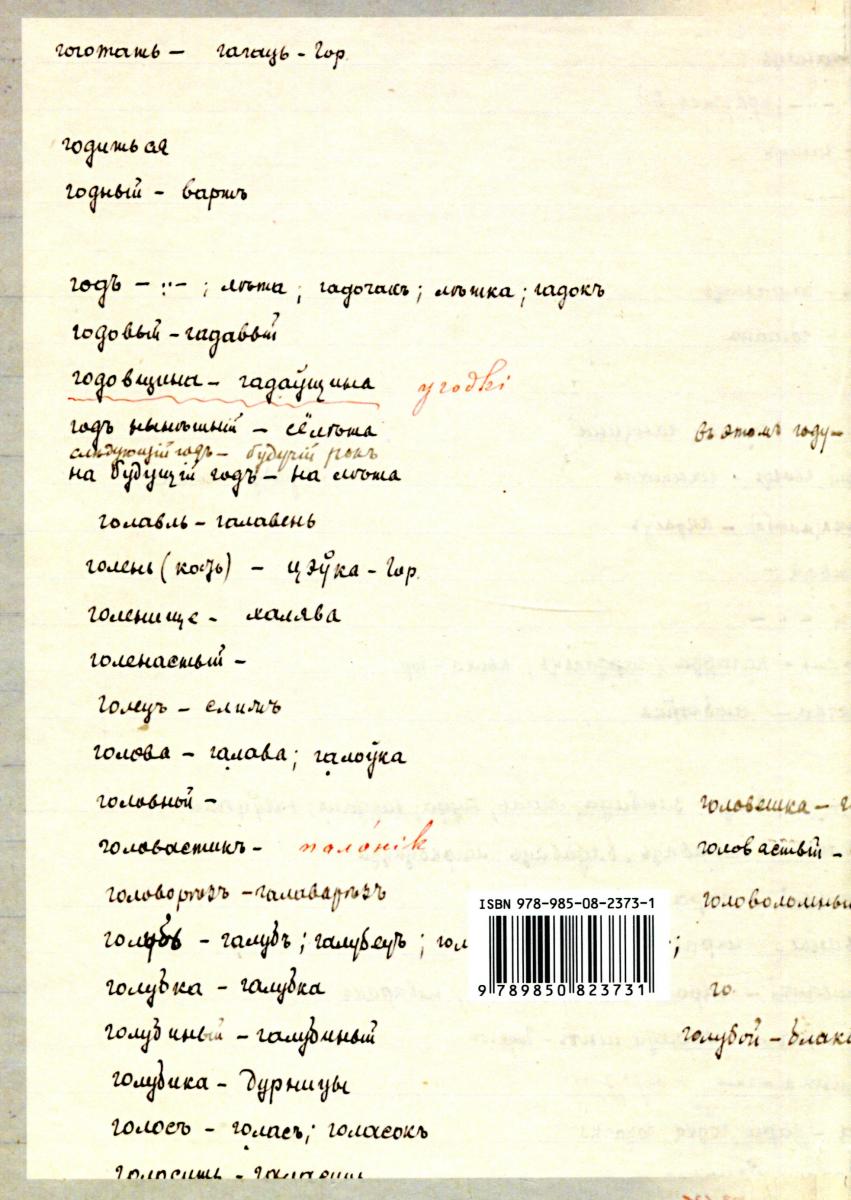 гоготать – гагаць - Гор.
годиться
годный – вартъ
годъ – :- ; лѣта ; гадочакъ ; лѣтка ; гадокъ
годовый – гадавый
годовщина – гадаўщина угодкі
годъ нынѣшній – сёлѣта въ этомъ году –
слѣдующій годъ – будучій рокъ
на будущій годъ – на лѣта
голавль – галавень
голень (кость) – цэўка - Гор.
голенище – халява
голенастый –
голецъ – слижъ
голова – галава ; галоўка
головной – головешка –
головастикъ – пало́нік головастый –
головорѣзъ – галаварѣзъ головоломный
голубь – галубъ ; галубецъ ; гол ;
ISBN 978-985-08-2373-1
9 789850 823731
голубка – галубка го
голубиный – галубиный голубой – блак
голубика – дурницы
голосъ – голасъ ; голасокъ
голосить – галасиць